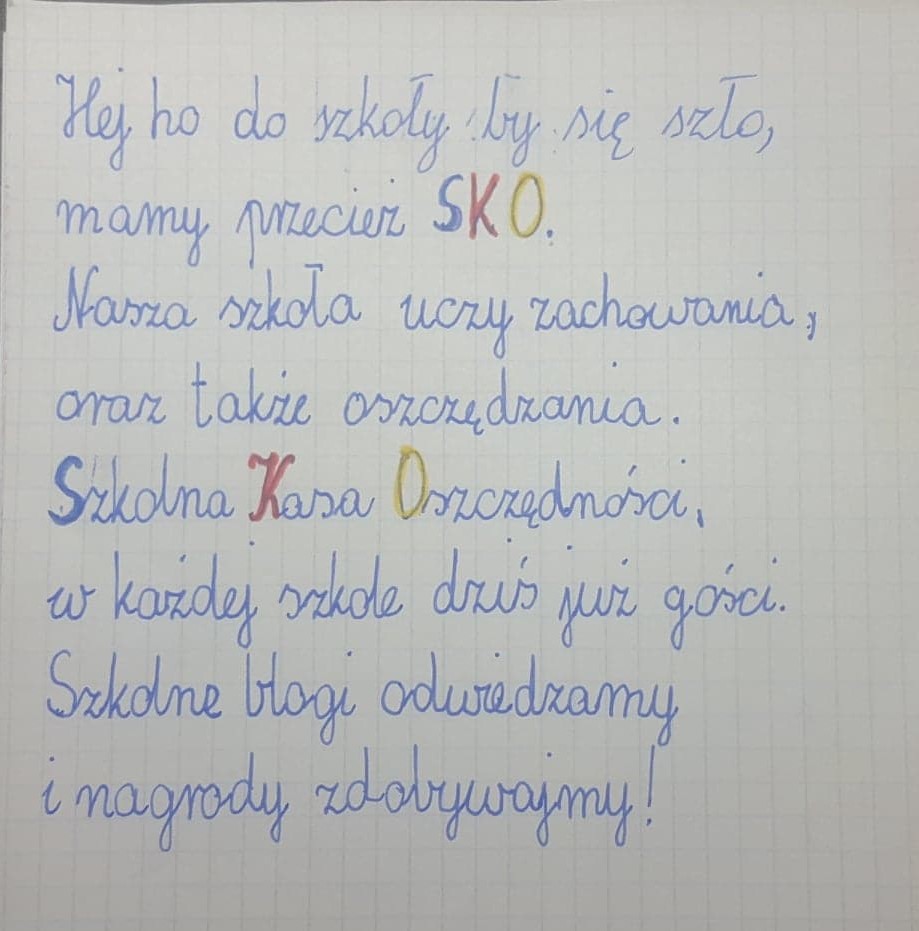 Hej ho do szkoły by się szło,
mamy przecież SKO.
Nasza szkoła uczy zachowania,
oraz także oszczędzania.
Szkolna Kasa Oszczędności,
w każdej szkole dziś już gości.
Szkolne blogi odwiedzamy
i nagrody zdobywajmy!